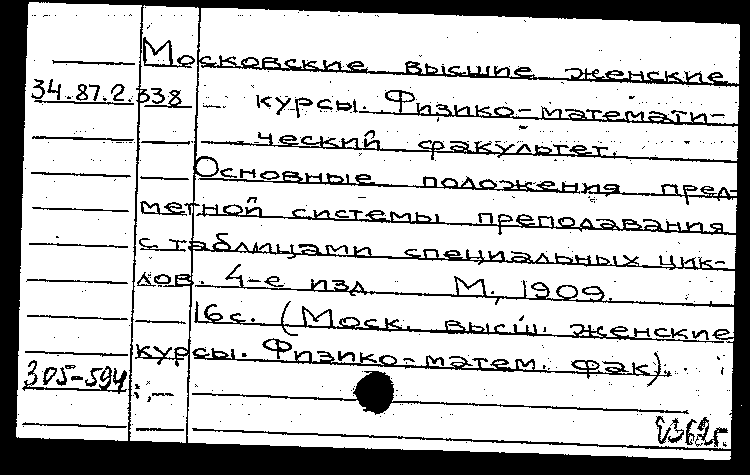 Московские высшие женские
34.87.2.338 курсы. Физико-математи-
ческий факультет.
Основные положения пред-
метной системы преподавания
с таблицами специальных цик-
лов. 4-е изд. М., 1909.
16 с. (Моск. высш. женские
курсы. Физико-матем. фак).
305-594